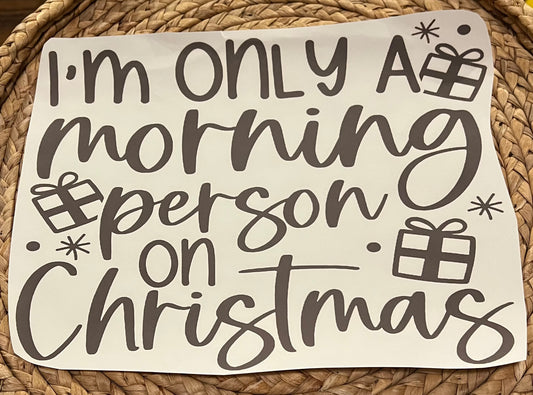 I'm ONLY A
morning
person
on
Christmas